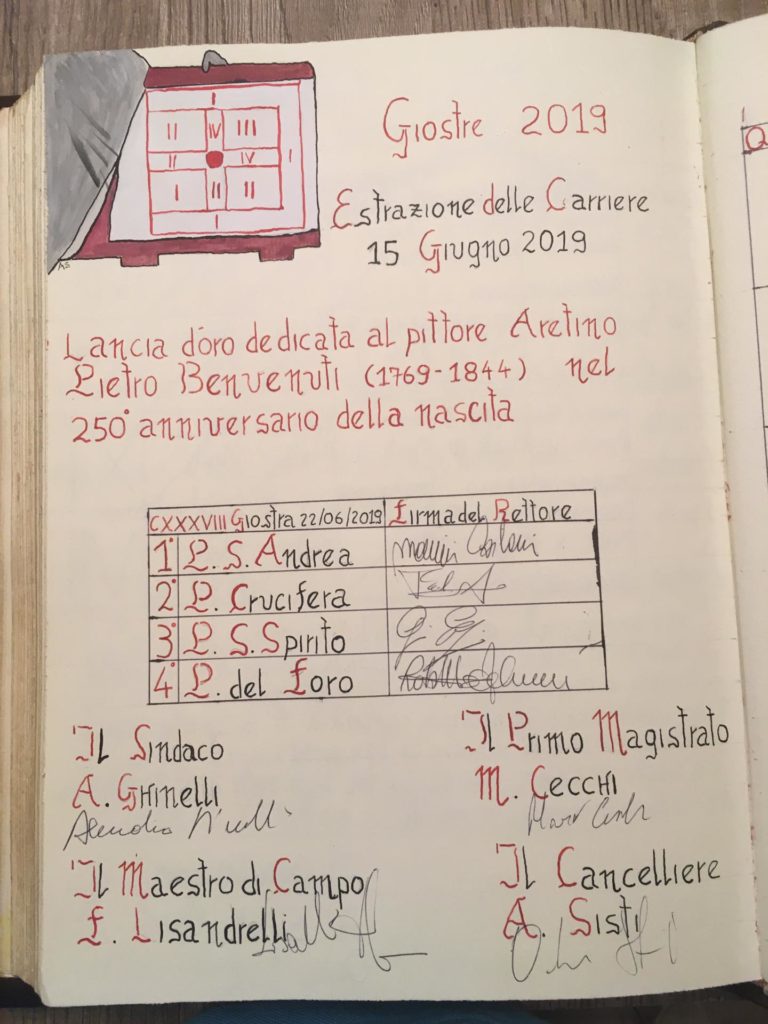 I
II IV III
II IV I
I II II
I
AS
Giostre 2019
Estrazione delle Carriere
15 Giugno 2019
Lancia d'oro dedicata al pittore Aretino
Pietro Benvenuti (1769-1844) nel
250° anniversario della nascita
CXXXVIII Giostra 22/06/2019 Firma del Rettore
1° P. S. Andrea
2° P. Crucifera
3° P. S. Spirito
4° P. del Foro
Il Sindaco
A. Ghinelli
Il Primo Magistrato
M. Cecchi
Il Maestro di Campo
F. Lisandrelli
Il Cancelliere
A. Sisti